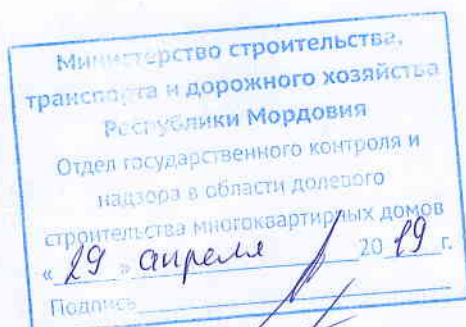 Министерство строительства,
транспорта и дорожного хозяйства
Республики Мордовия
Отдел государственного контроля и
надзора в области долевого
строительства многоквартирных домов
« 29 » апреля 20 19 г.
Подпись